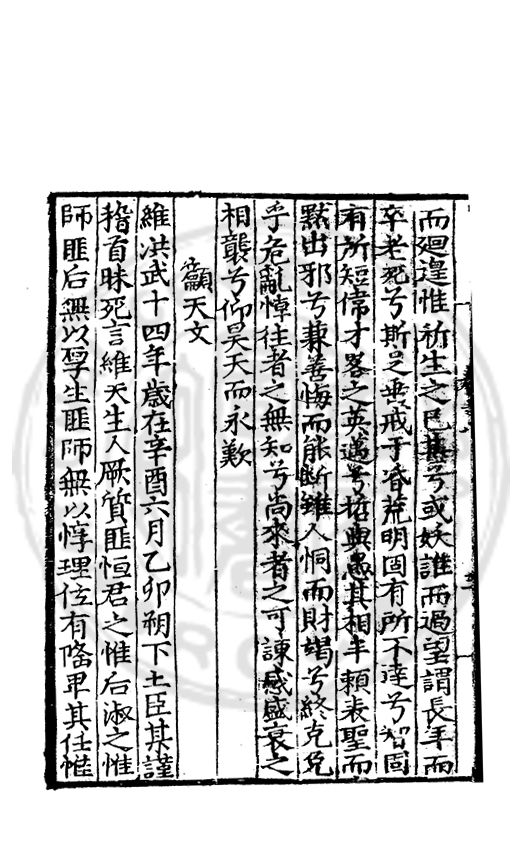 而廻遑惟祈生之已甚兮或妖誰而過望謂長年而
卒老死兮斯足垂戒于昏荒明固有所不達兮智固
有所短偉才畧之英邁兮哲與愚其相半賴表聖而
黙出邪兮兼善悔而能斷雖人恫而財竭兮終克免
乎危亂悼往者之無知兮尚來者之可諫感盛衰之
相襲兮仰昊天而永歎
籲天文
維洪武十四年歳在辛酉六月乙卯朔下土臣其謹
稽首昧死言維天生人厥質匪恒君之惟后淑之惟
師匪后無以孚生匪師無以惇理位有隆卑其任惟